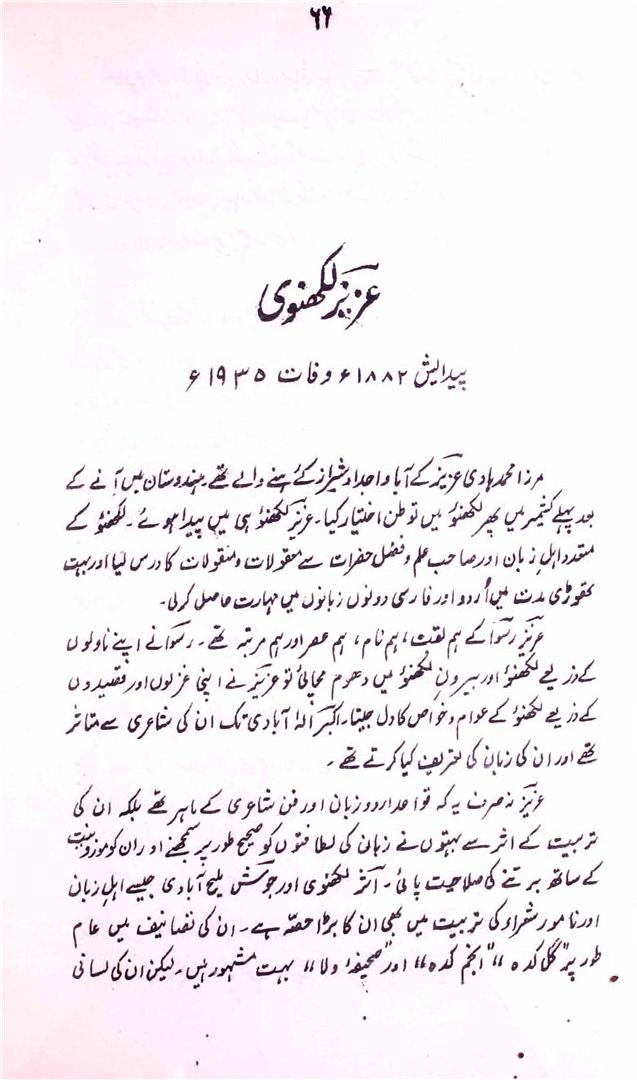 ۶۶
عزیز لکھنوی
پیدایش ۱۸۸۲ء وفات ۱۹۳۵ء
مرزا محمد ہادی عزیز کے آبا و اجداد شیراز کے رہنے والے تھے۔ ہندوستان میں آنے کے
بعد پہلے کشمیر میں پھر لکھنؤ میں توطن اختیار کیا۔ عزیز لکھنؤ ہی میں پیدا ہوئے۔ لکھنؤ کے
متعدد اہلِ زبان اور صاحب علم و فضل حضرات سے معقولات و منقولات کا درس لیا اور بہت
تھوڑی مدت میں اُردو اور فارسی دونوں زبانوں میں مہارت حاصل کرلی۔
عزیز رسوا کے ہم لقب، ہم نام، ہم عصر اور ہم مرتبہ تھے۔ رسوا نے اپنے ناولوں
کے ذریعے لکھنؤ اور بیرونِ لکھنؤ میں دھوم مچائی تو عزیز نے اپنی غزلوں اور قصیدوں
کے ذریعے لکھنؤ کے عوام و خواص کا دل جیتا۔ اکبر الہٰ آبادی تک ان کی شاعری سے متاثر
تھے اور ان کی زبان کی تعریف کیا کرتے تھے۔
عزیز نہ صرف یہ کہ قواعد اردو زبان اور فن شاعری کے ماہر تھے بلکہ ان کی
تربیت کے اثر سے بہتوں نے زبان کی لطافتوں کو صحیح طور پر سمجھنے اور ان کو موزونیت
کے ساتھ برتنے کی صلاحیت پائی۔ اثر لکھنوی اور جوش ملیح آبادی جیسے اہلِ زبان
اور نامور شعراء کی تربیت میں بھی ان کا بڑا حصّہ ہے۔ ان کی تصانیف میں عام
طور پر "گل کدہ" "انجم کدہ" اور "صحیفۂ ولا" بہت مشہور ہیں۔ لیکن ان کی لسانی